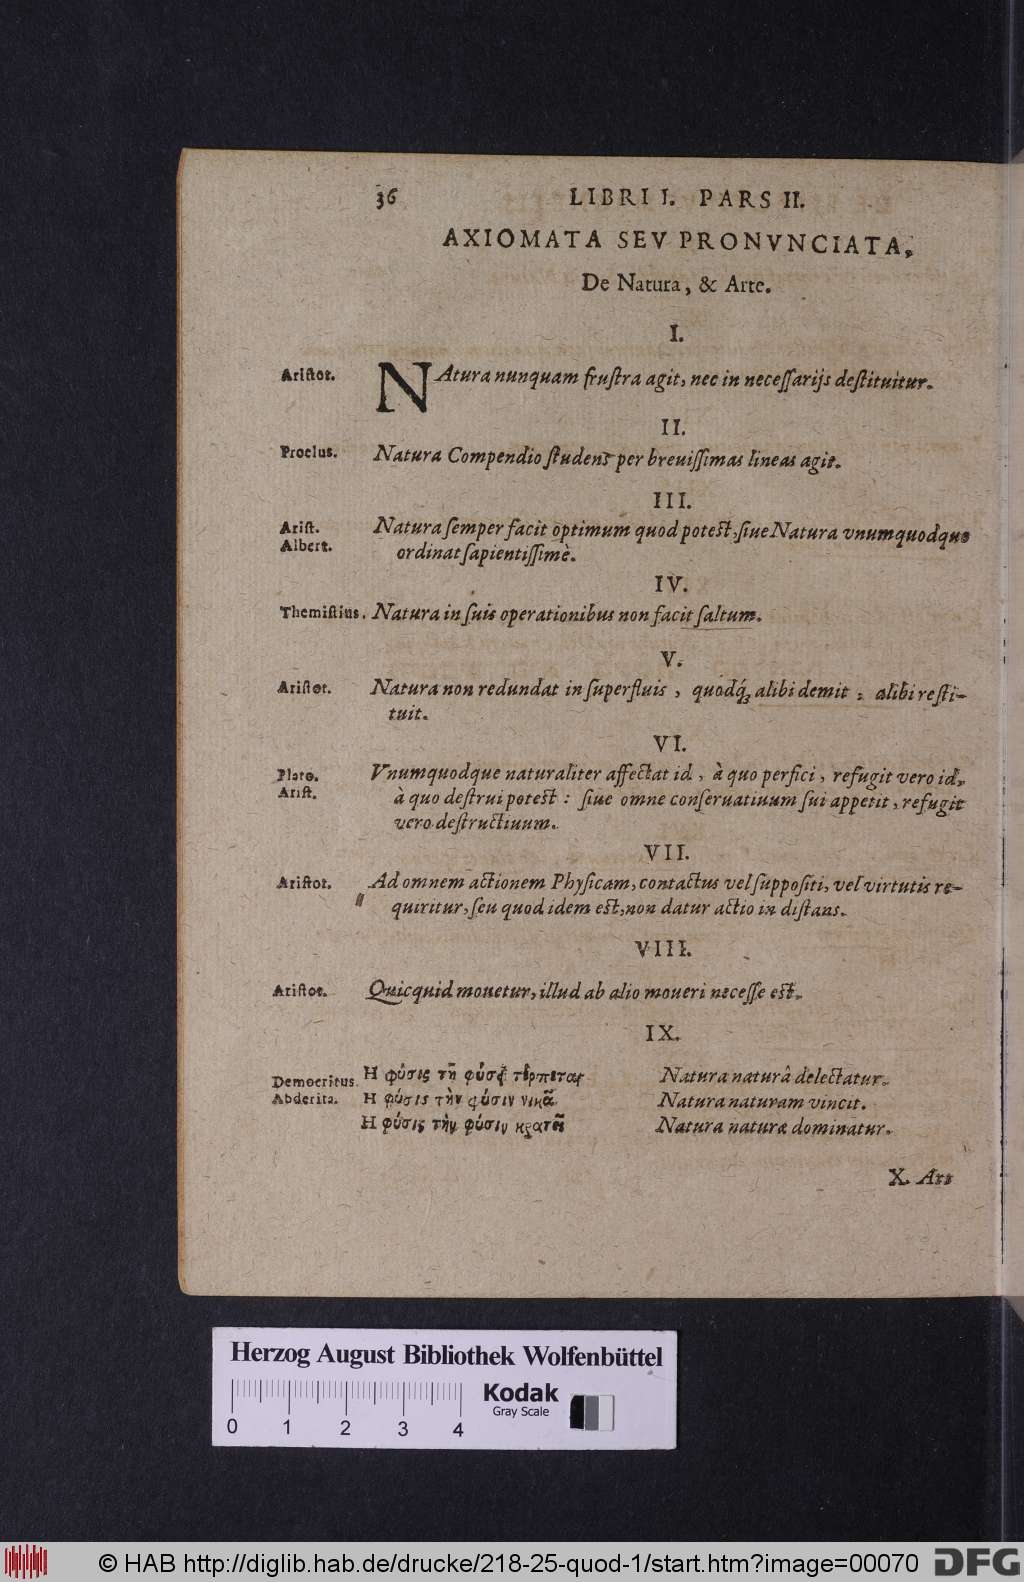 36 LIBRI I. PARS II.
AXIOMATA SEV PRONVNCIATA,
De Natura, & Arte.
I.
Aristot. NAtura nunquam frustra agit, nec in necessarijs destituitur.
II.
Proclus. Natura Compendio studens per breuissimas lineas agit.
III.
Arist. Natura semper facit optimum quod potest, siue Natura vnumquodque
Albert. ordinat sapientissimè.
IV.
Themistius. Natura in suis operationibus non facit saltum.
V.
Aristot. Natura non redundat in superfluis, quodq́ꝫ alibi demit, alibi resti-
tuit.
VI.
Plato. Vnumquodque naturaliter affectat id, à quo perfici, refugit vero id,
Arist. à quo destrui potest: siue omne conseruatiuum sui appetit, refugit
vero destructiuum.
VII.
Aristot. Ad omnem actionem Physicam, contactus vel suppositi, vel virtutis re-
quiritur, seu quod idem est, non datur actio in distans.
VIII.
Aristot. Quicquid mouetur, illud ab alio moueri necesse est.
IX.
Democritus Η φύσις τῇ φύσει τέρπεται Natura naturâ delectatur.
Abderita. Η φύσις τὴν φύσιν νικᾷ Natura naturam vincit.
Η φύσις τὴν φύσιν κρατεῖ Natura naturæ dominatur.
X. Ars
Herzog August Bibliothek Wolfenbüttel
Kodak
Gray Scale
0 1 2 3 4
© HAB http://diglib.hab.de/drucke/218-25-quod-1/start.htm?image=00070 DFG